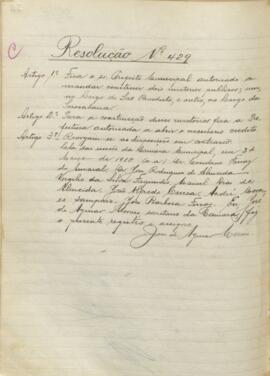 C
Resolução Nº 429
Artigo 1º Fica o sr. Prefeito Municipal autorizado a
mandar construir dois mictorios publicos, um,
no Largo de São Benedicto, e outro, no Largo da
Artigo 2º Para a construcção desses mictorios fica a Pre-
feitura autorizada a abrir o necessario credito
Artigo 3º Revogam-se as disposições em contrario
Sala das sessões da Camara Municipal, em 3 de
Março de 1920 (a.a)
do Amaral Rodrigues de Almeida
da Silva Fagundes, Manoel Dias de
Almeida, José Alfredo Correa, André
es Sampaio, José Barbosa Ferraz. Eu, José
de Aguiar secretario da Camara, fiz
o presente registro e assigno
José de Aguiar